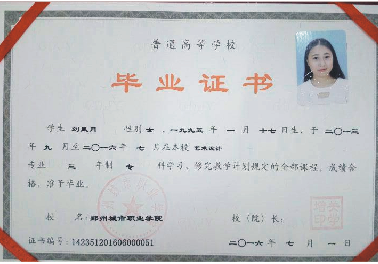 普通高等学校
毕业证书
学生 刘星月 性别 女 ，一九九五年 一 月 十七 日生，于 二〇一三
年 九 月至二〇一六年 七 月在本校 艺术设计
专业 三 年制 专 科学习，修完教学计划规定的全部课程，成绩合
格，准予毕业。
校 名：郑州城市职业学院 校（院）长：
证书编号：142351201606000051 二〇一六年 七 月 一 日